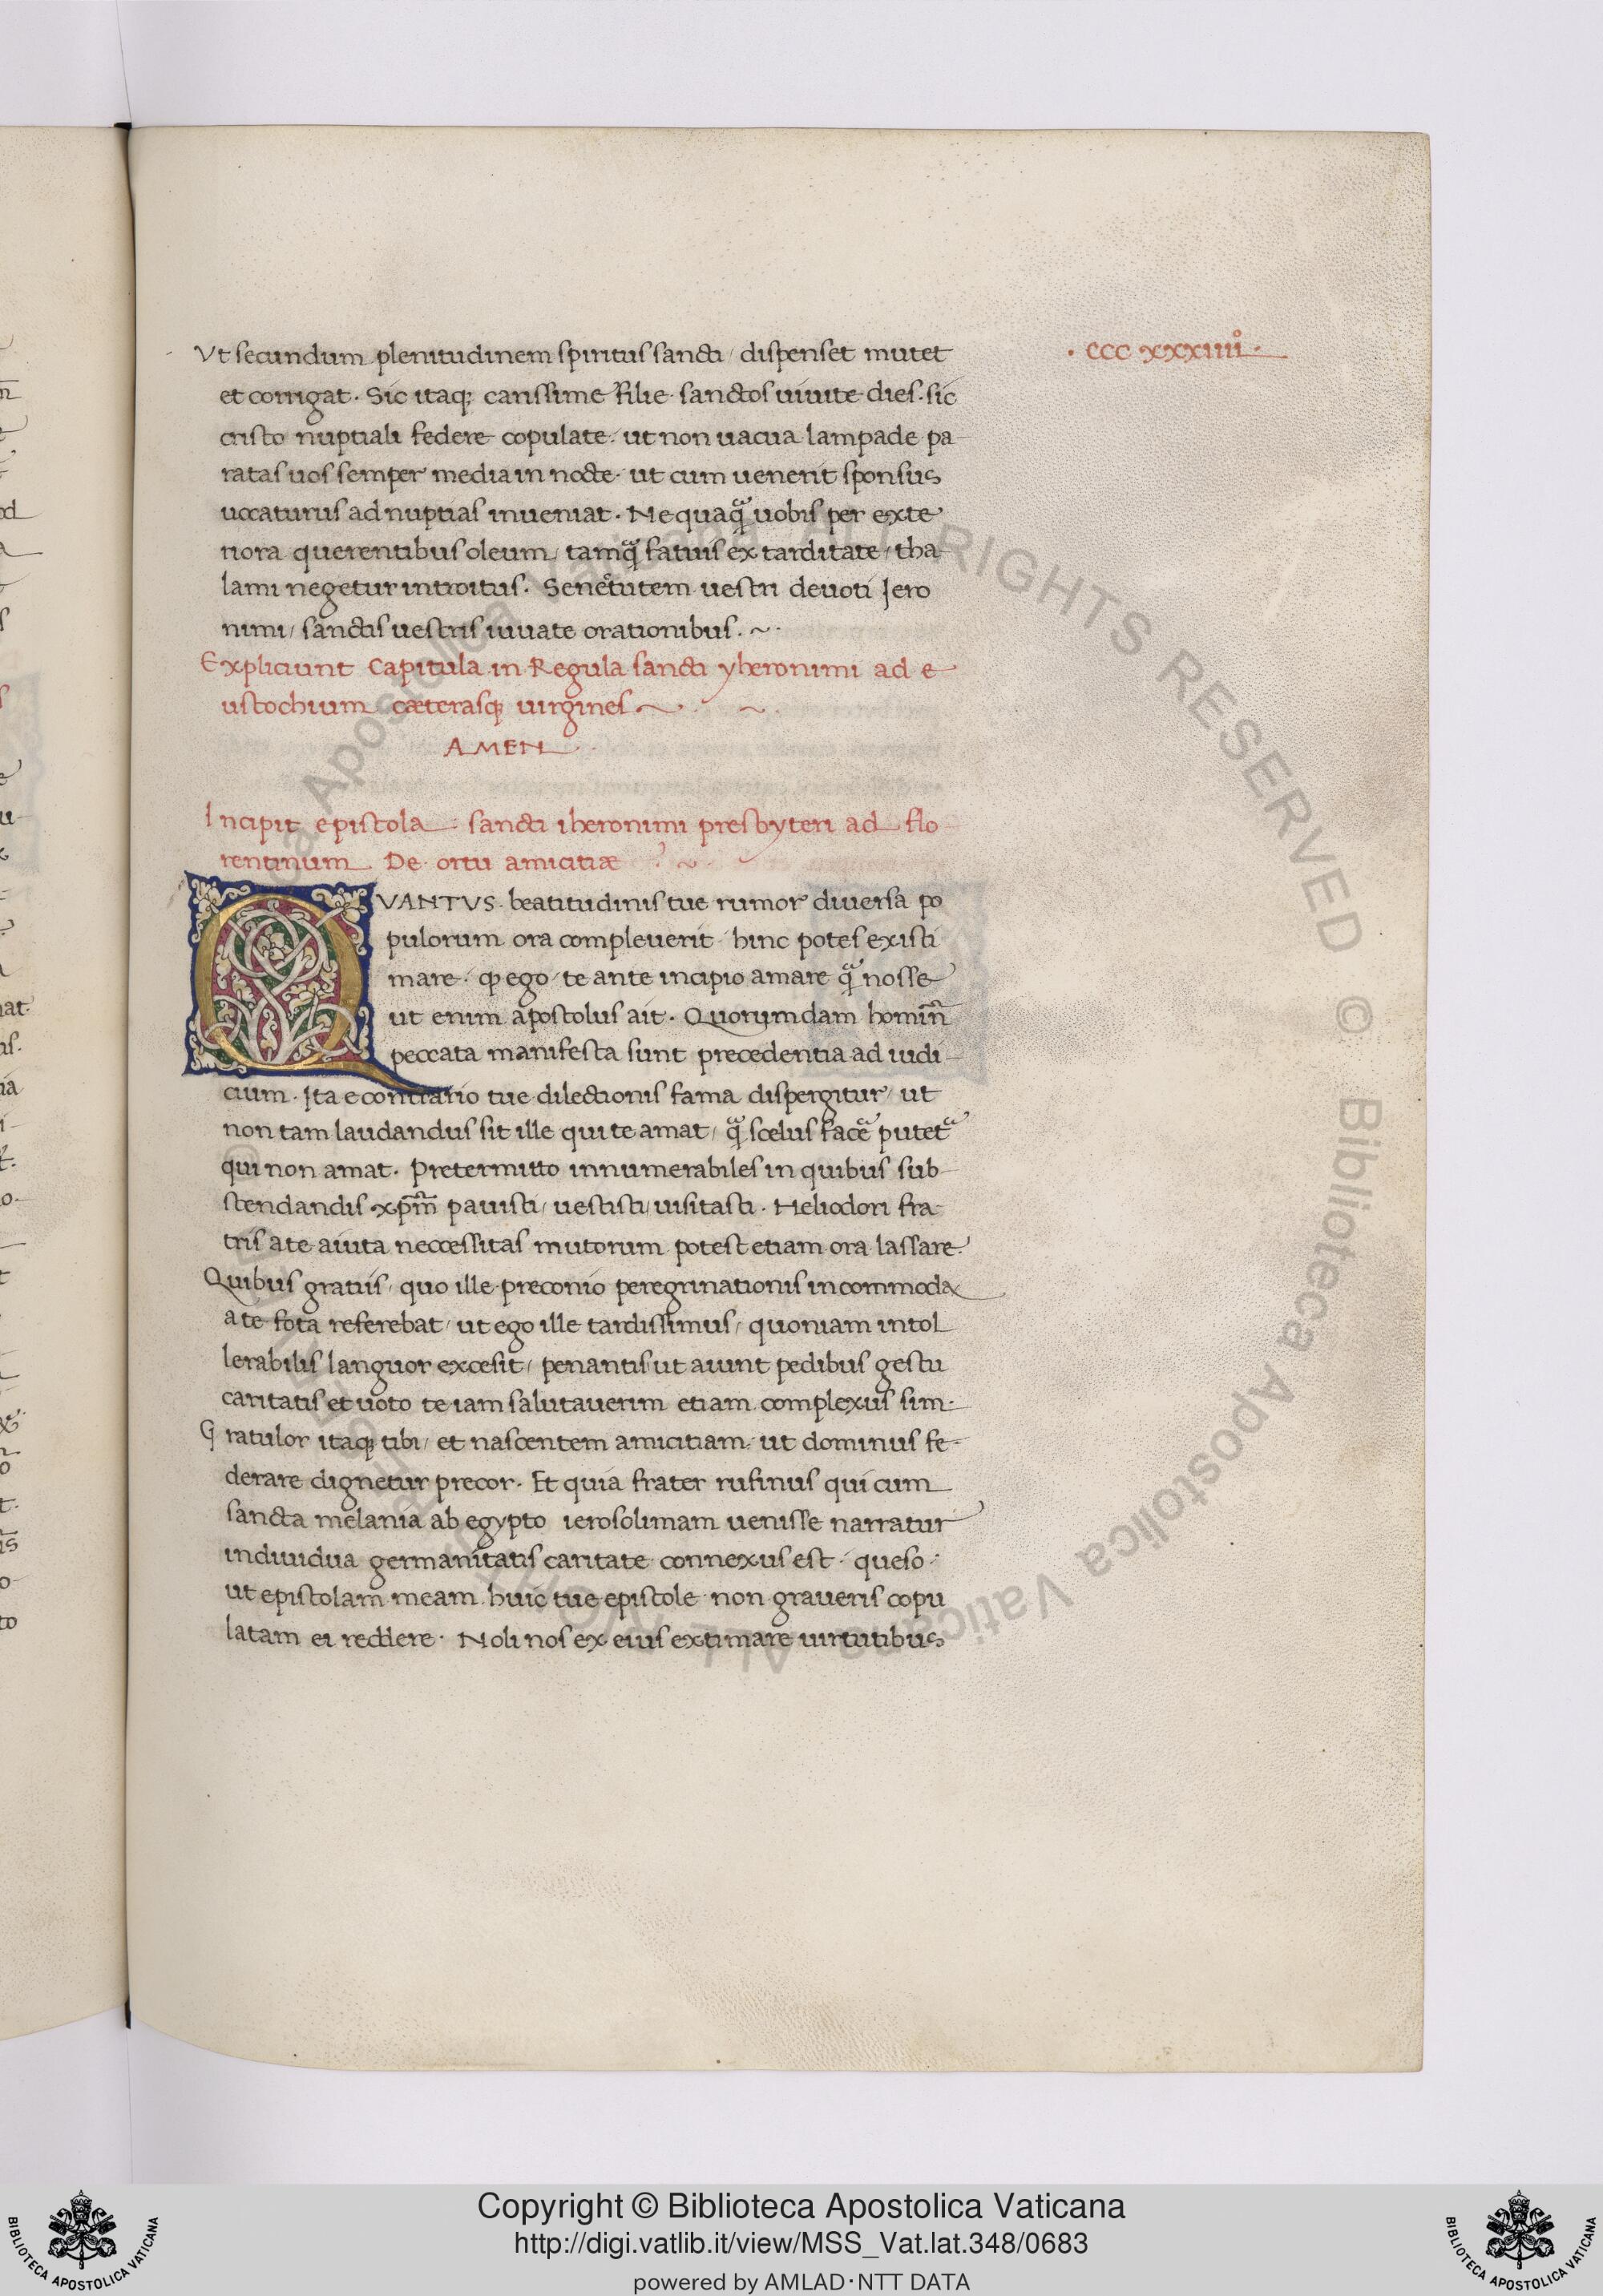 · ccc xxxiiii° ·
Vt secundum plenitudinem spiritus sancti / dispenset mutet
et corrigat · Sic itaq; carissime filie sanctos uiuite dies · sic
cristo nuptiali federe copulate · ut non uacua lampade pa
ratas uos semper media in nocte · ut cum uenerit sponsus
uocaturus ad nuptias inueniat · Nequaqᷓ uobis per exte
riora querentibus oleum / tamqᷓ fatuis ex tarditate / tha-
lami negetur introitus · Senectutem uestri deuoti Jero
nimi / sanctis uestris iuuate orationibus . ~ ·
Expliciunt Capitula in Regula sancti yheronimi ad e
ustochium cæterasq; uirgines ~ · ~ ·
AMEN
Incipit epistola : sancti iheronimi presbyteri ad flo
rentinum De ortu amicitiæ
QVANTVS · beatitudinis tue rumor diuersa po
pulorum ora compleuerit · hinc potes existi
mare · ꝙ ego / te ante incipio amare qᷓ nosse
ut enim apostolus ait · Quorumdam homin̄
peccata manifesta sunt precedentia ad iudi-
cium · Ita e contrario tue dilectionis fama dispergitur / ut
non tam laudandus sit ille qui te amat / qᷓ scelus facẽ putetᷓ
qui non amat · Pretermitto innumerabiles in quibus sub
stendandis xpm̄ pauisti / uestisti / uisitasti · Heliodori fra-
tris a te aiuta neccessitas mutorum potest etiam ora lassare ·
Quibus gratiis / quo ille preconio peregrinationis incommoda
a te fota referebat / ut ego ille tardissimus / quoniam intol
lerabilis languor excesit / penantis ut aiunt pedibus gestu
caritatis et uoto te iam salutauerim etiam complexus sim ·
Gratulor itaq; tibi / et nascentem amicitiam · ut dominus fe-
derare dignetur precor · Et quia frater rufinus qui cum
sancta melania ab egypto ierosolimam uenisse narratur
indiuidua germanitatis caritate connexus est · queso ·
ut epistolam meam huic tue epistole non graueris copu
latam ei reddere · Noli nos ex eius extimare uirtutibus
Copyright © Biblioteca Apostolica Vaticana
http://digi.vatlib.it/view/MSS_Vat.lat.348/0683
powered by AMLAD·NTT DATA
BIBLIOTECA APOSTOLICA VATICANA
BIBLIOTECA APOSTOLICA VATICANA